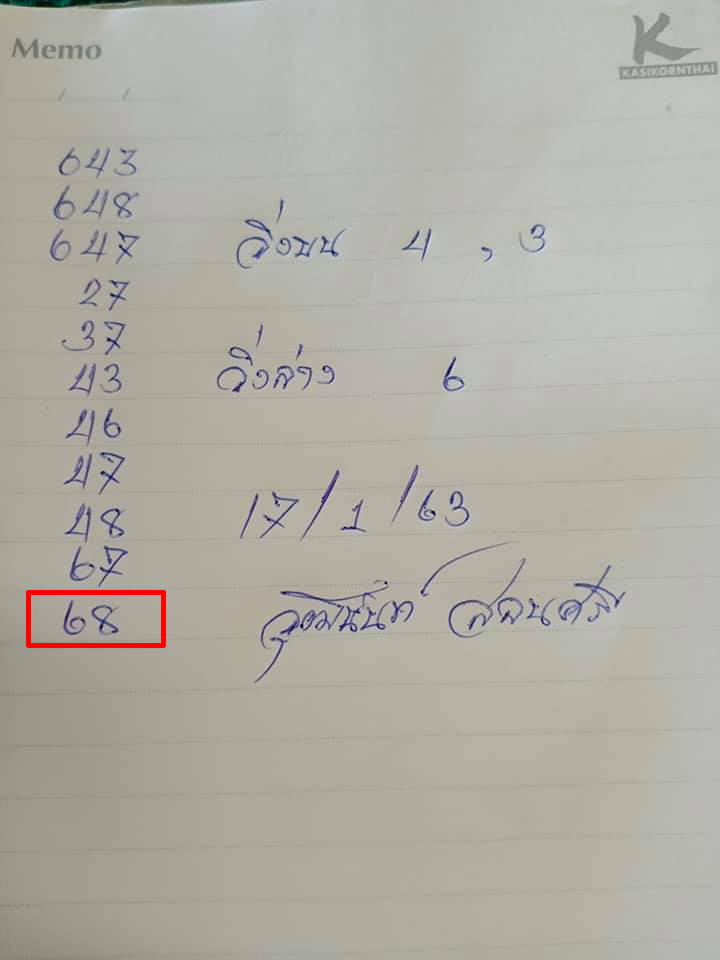 Memo
K
KASIKORNTHAI
/ /
643
648
647 วิ่งบน 4 , 3
27
37
43 วิ่งล่าง 6
46
47
48 17/1/63
67
68